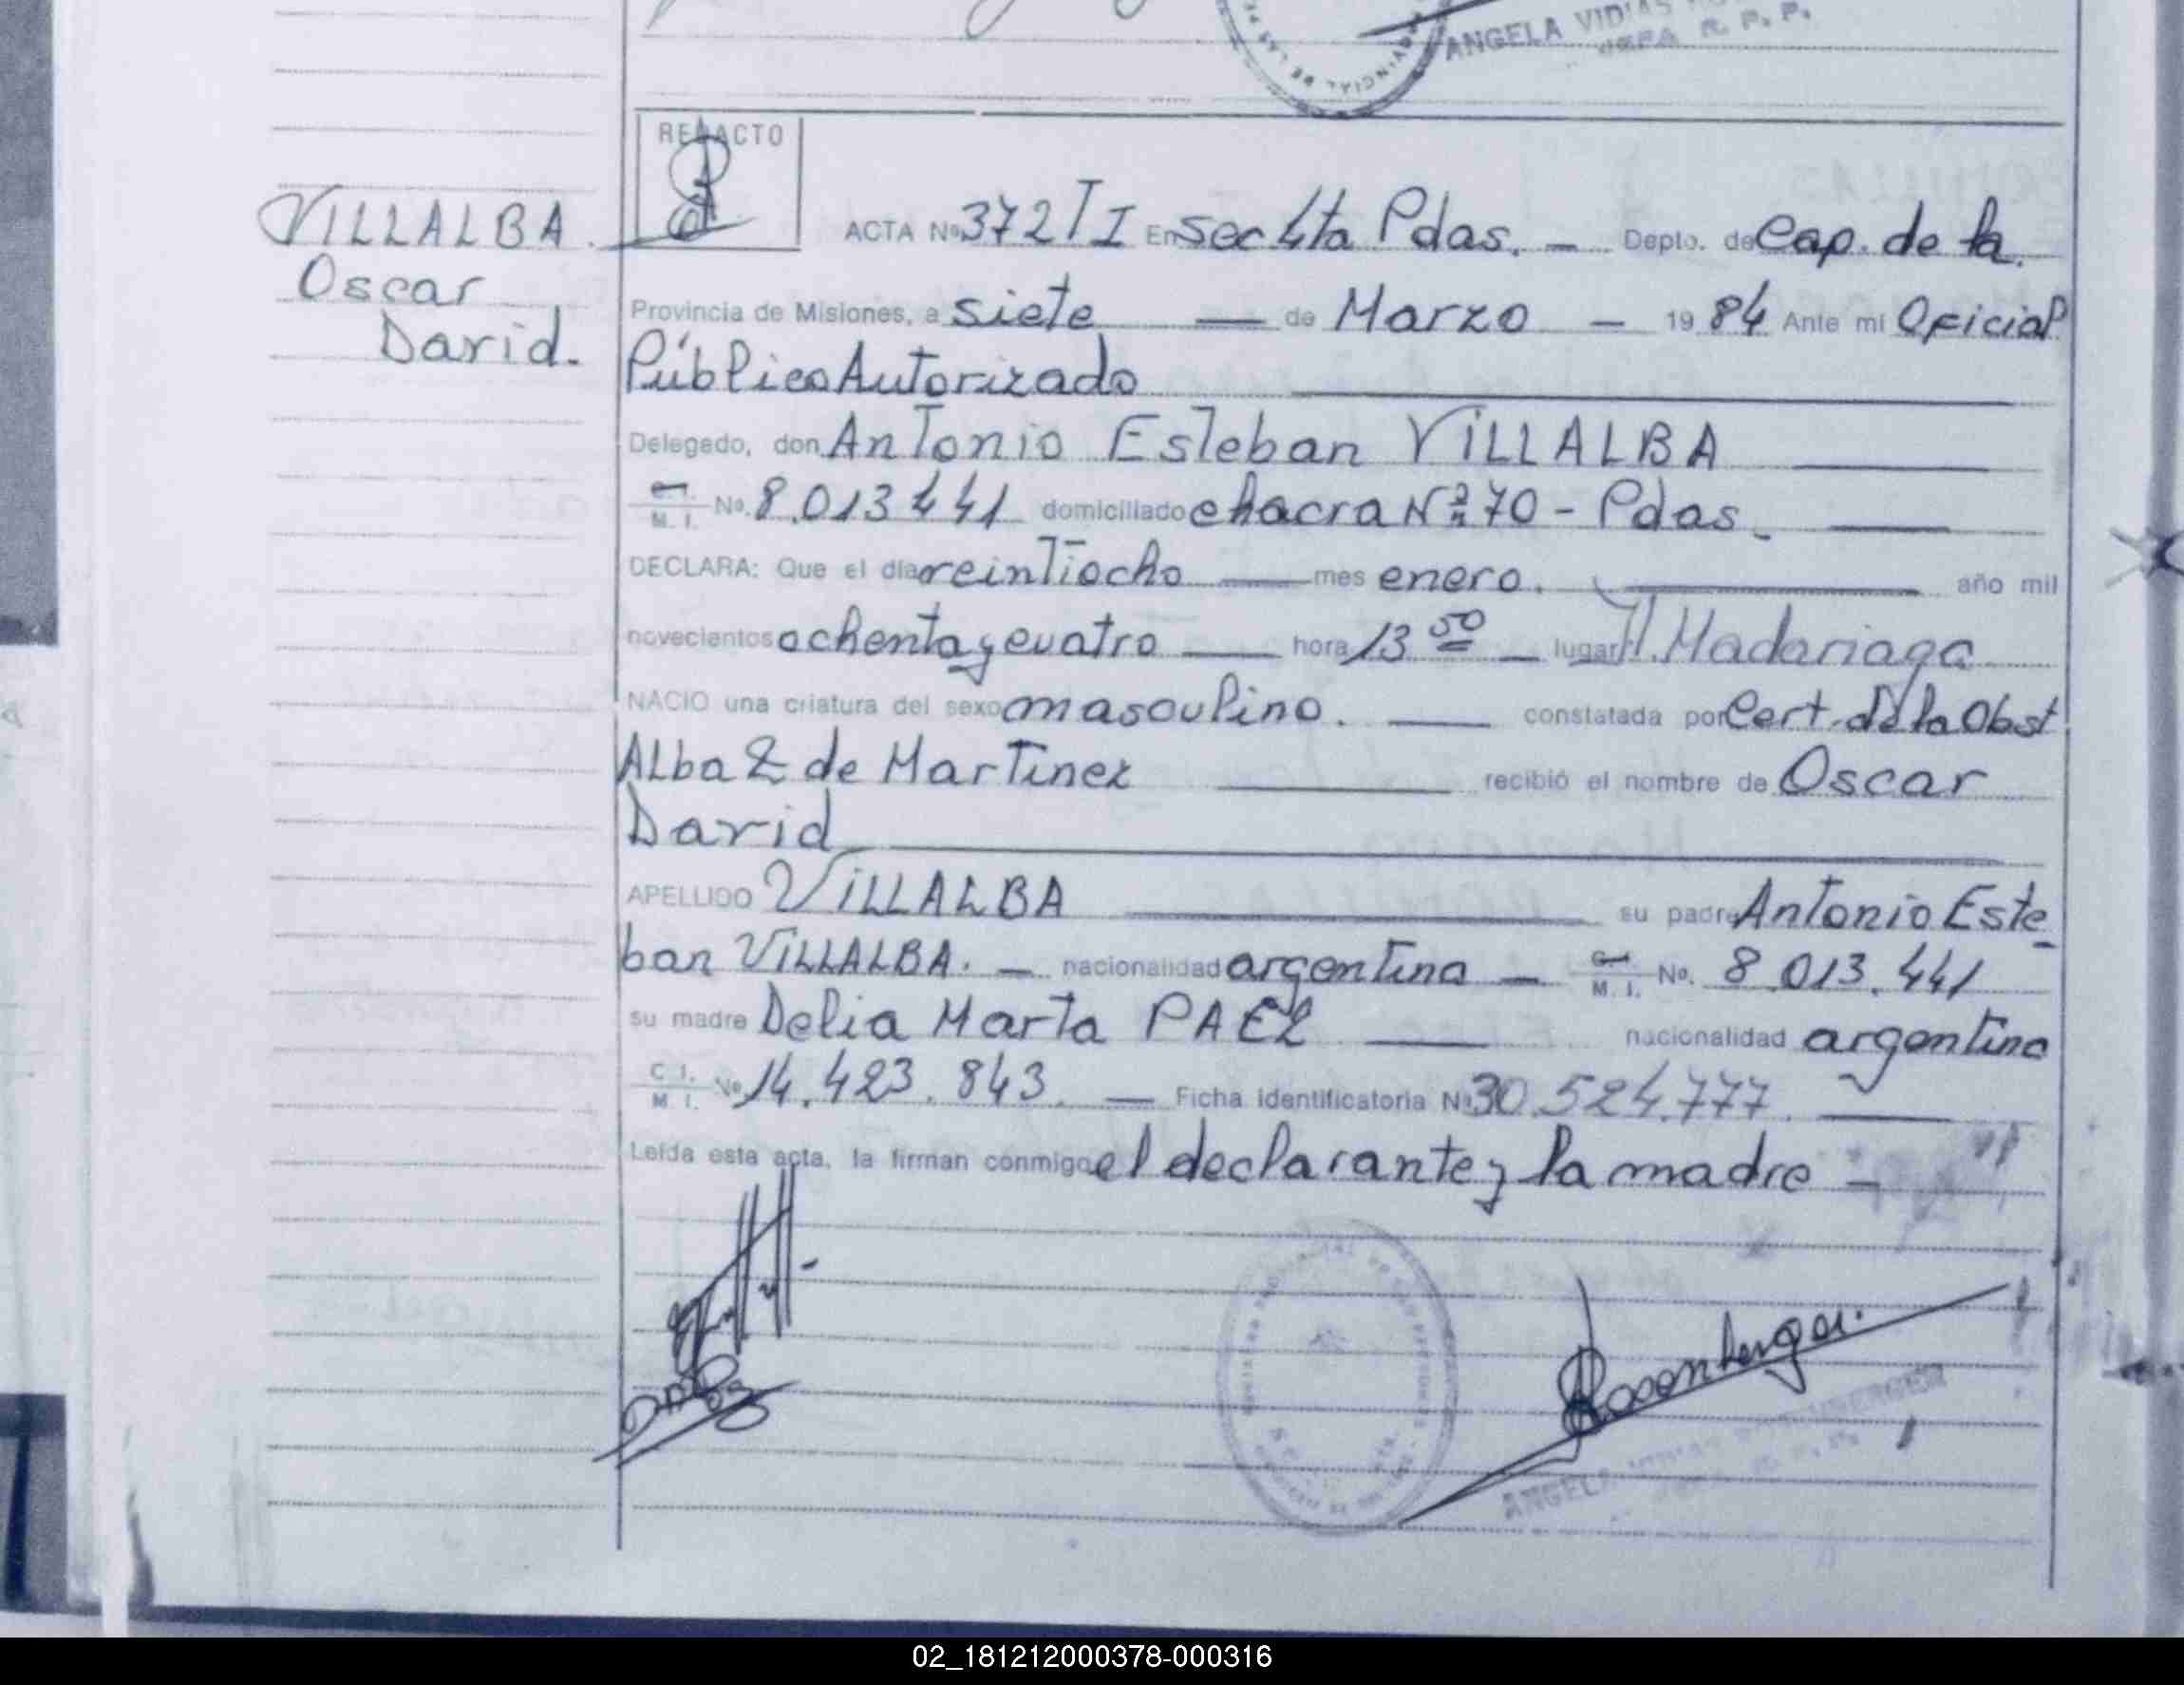 ANGELA VIDIAS
JEFA R. P. P.
REDACTO
VILLALBA
Oscar
David.
ACTA Nº 372 T I En Sec 4ta Pdas. — Depto. de Cap. de la
Provincia de Misiones, a siete — de Marzo — 19 84 Ante mi Oficial
Público Autorizado
Delegado, don Antonio Esteban VILLALBA
C. I. M. I. No. 8.013.441 domiciliado chacra Nº 70 - Pdas.
DECLARA: Que el día veintiocho — mes enero. — año mil
novecientos ochenta y cuatro — hora 13 50 — lugar H. Madariaga
NACIO una criatura del sexo masculino. — constatada por Cert. de la Obst
Alba Z de Martinez — recibió el nombre de Oscar
David
APELLIDO VILLALBA — su padre Antonio Este
ban VILLALBA. — nacionalidad argentina — C. I. M. I. No. 8.013.441
su madre Delia Marta PAEZ — nacionalidad argentina
C. I. M. I. No. 14.423.843. — Ficha identificatoria Nº 30.524.777.
Leída esta acta, la firman conmigo el declarante y la madre -
Rosenberger
ANGELA VIDIAS ROSENBERGER
02_181212000378-000316